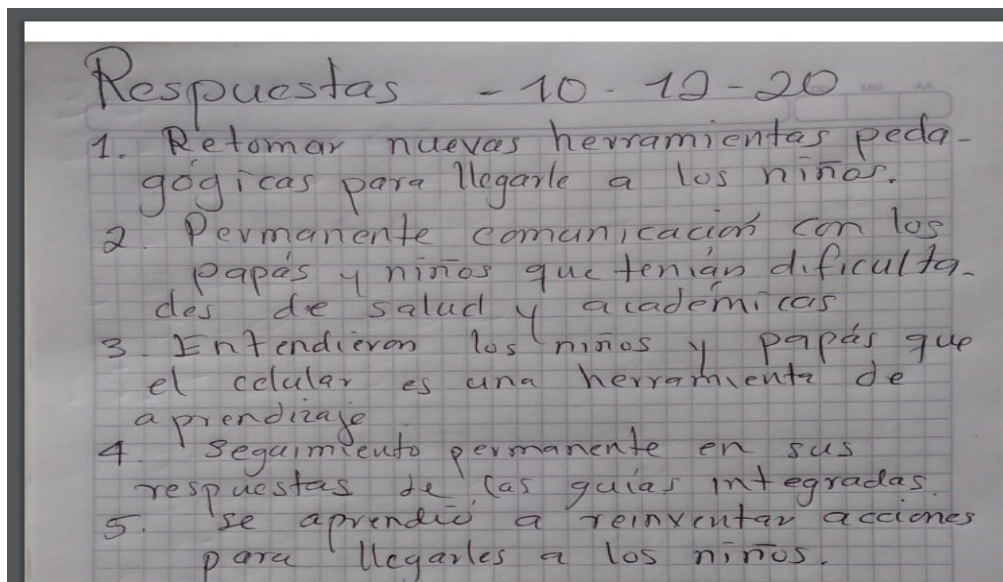 Respuestas - 10 - 12 - 20
1. Retomar nuevas herramientas peda-
gógicas para llegarle a los niños.
2. Permanente comunicación con los
papás y niños que tenían dificulta-
des de salud y académicas
3. Entendieron los niños y papás que
el celular es una herramienta de
aprendizaje
4. Seguimiento permanente en sus
respuestas de las guías integradas.
5. Se aprendió a reinventar acciones
para llegarles a los niños.